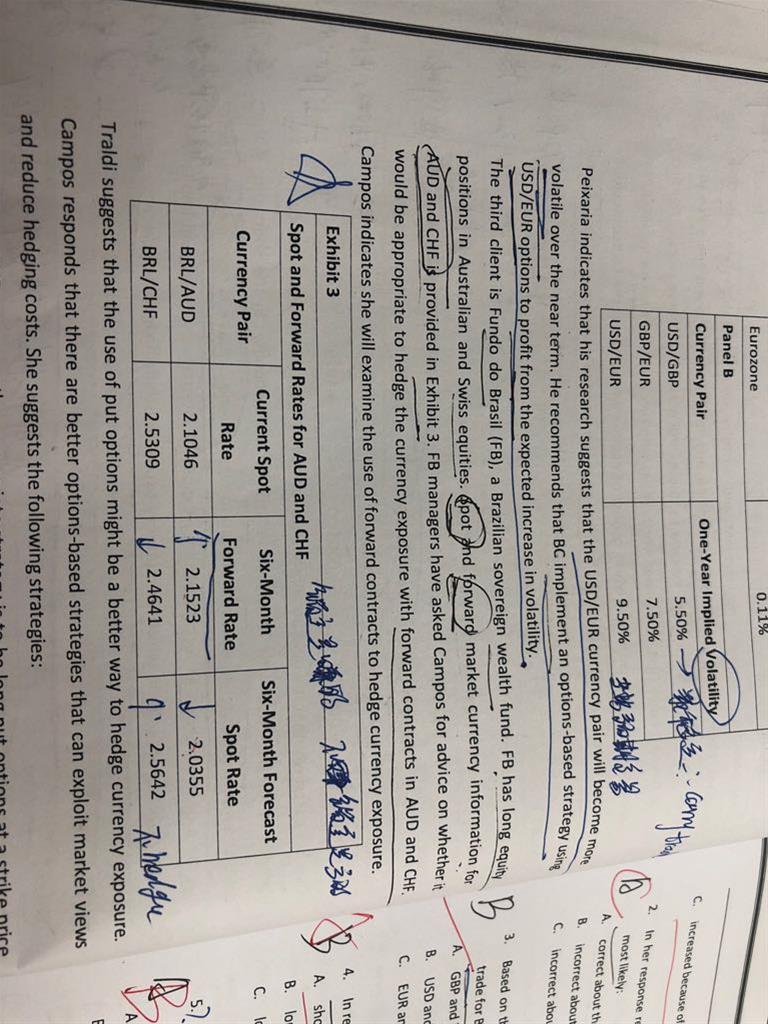 Eurozone 0.11%
Panel B
Currency Pair One-Year Implied Volatility
USD/GBP 5.50%
GBP/EUR 7.50%
USD/EUR 9.50%
Peixaria indicates that his research suggests that the USD/EUR currency pair will become more
volatile over the near term. He recommends that BC implement an options-based strategy using
USD/EUR options to profit from the expected increase in volatility.
The third client is Fundo do Brasil (FB), a Brazilian sovereign wealth fund. FB has long equity
positions in Australian and Swiss equities. Spot and forward market currency information for
AUD and CHF is provided in Exhibit 3. FB managers have asked Campos for advice on whether it
would be appropriate to hedge the currency exposure with forward contracts in AUD and CHF.
Campos indicates she will examine the use of forward contracts to hedge currency exposure.
Exhibit 3
Spot and Forward Rates for AUD and CHF
Currency Pair Current Spot Rate Six-Month Forward Rate Six-Month Forecast Spot Rate
BRL/AUD 2.1046 2.1523 2.0355
BRL/CHF 2.5309 2.4641 2.5642 不hedge
Traldi suggests that the use of put options might be a better way to hedge currency exposure.
Campos responds that there are better options-based strategies that can exploit market views
and reduce hedging costs. She suggests the following strategies:
put options at a strike price
C. increased because of
2. In her response
most likely:
A. correct about
B. incorrect about
C. incorrect
B
3. Based on
trade for
A. GBP and
B. USD and
C. EUR
B
4. In
A.
B.
C.
5.
A